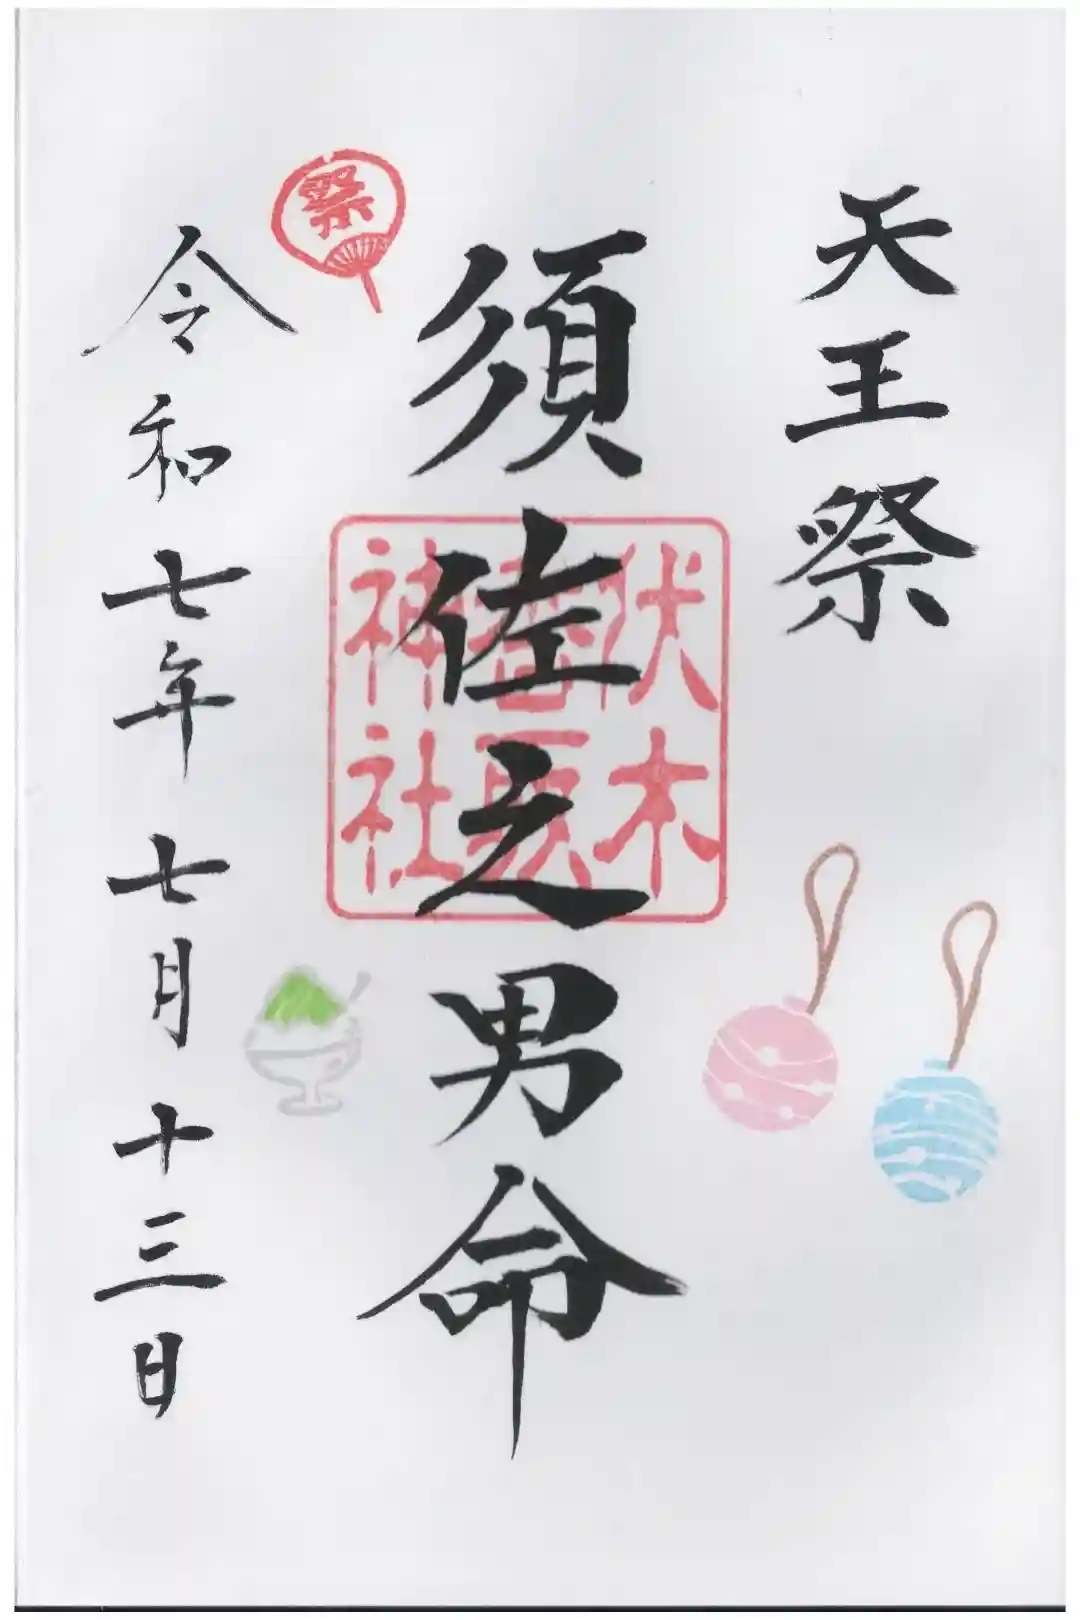 天王祭
須佐之男命
伏木
香取
神社
祭
令和七年七月十三日